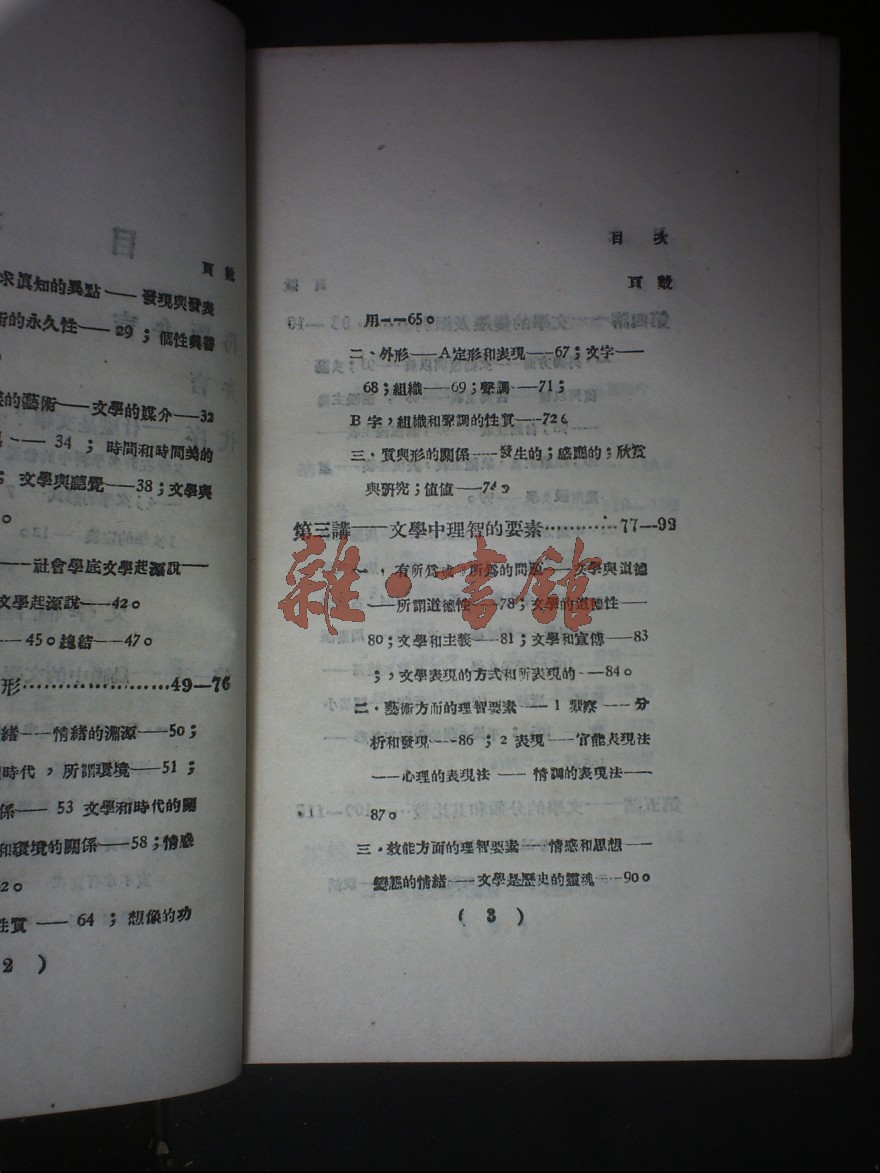 目
頁數
求眞知的異點——發現與發表
術的永久性——29；個性與普
。
的藝術——文學的媒介——32
——34；時間和時間美的
；文學與聽覺——38；文學與
。
——社會學底文學起源說——
文學起源說——42。
——45。總結——47。
形…………………49—76
緒——情緒的淵源——50；
時代，所謂環境——51；
係——53 文學和時代的關
和環境的關係——58；情感
2。
性質——64；想像的功
2 )
目 次
頁數
用——65。
二、外形——A定形和表現——67；文字——
68；組織——69；聲調——71；
B 字，組織和聲調的性質——72。
三．質與形的關係——發生的；感應的；欣賞
與研究；值值——74。
第三講——文學中理智的要素…………77—92
一，有所爲或 所爲的問題——文學與道德
——所謂道德性——78；文學的道德性——
80；文學和主義——81；文學和宣傳——83
；，文學表現的方式和所表現的——84。
二．藝術方面的理智要素——1 觀察——分
析和發現——86；2 表現——官能表現法
——心理的表現法——情調的表現法——
87。
三．效能方面的理智要素——情感和思想——
變態的情緒——文學是歷史的靈魂——90。
( 3 )
雜·書館